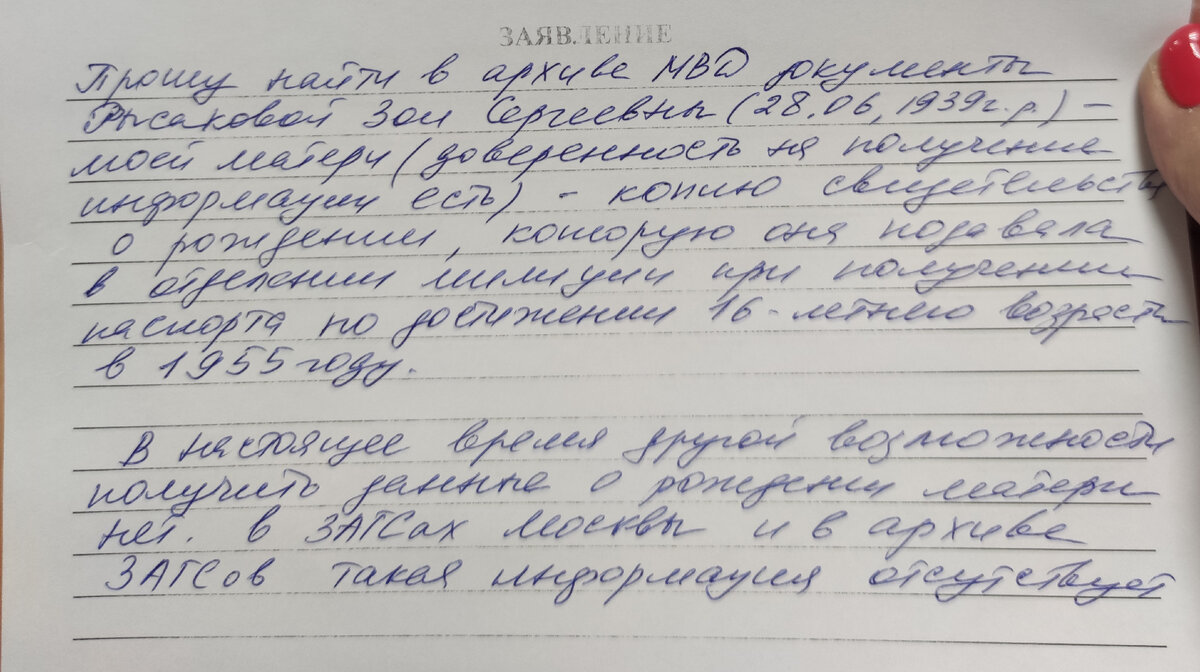 ЗАЯВЛЕНИЕ
Прошу найти в архиве МВД документы
Рысаковой Зои Сергеевны (28.06.1939 г.р.) –
моей матери (доверенность на получение
информации есть) - копию свидетельства
о рождении, которую она подавала
в отделении милиции при получении
паспорта по достижении 16-летнего возраста
в 1955 году.
В настоящее время другой возможности
получить данные о рождении матери
нет. в ЗАГСах Москвы и в архиве
ЗАГСов такая информация отсутствует